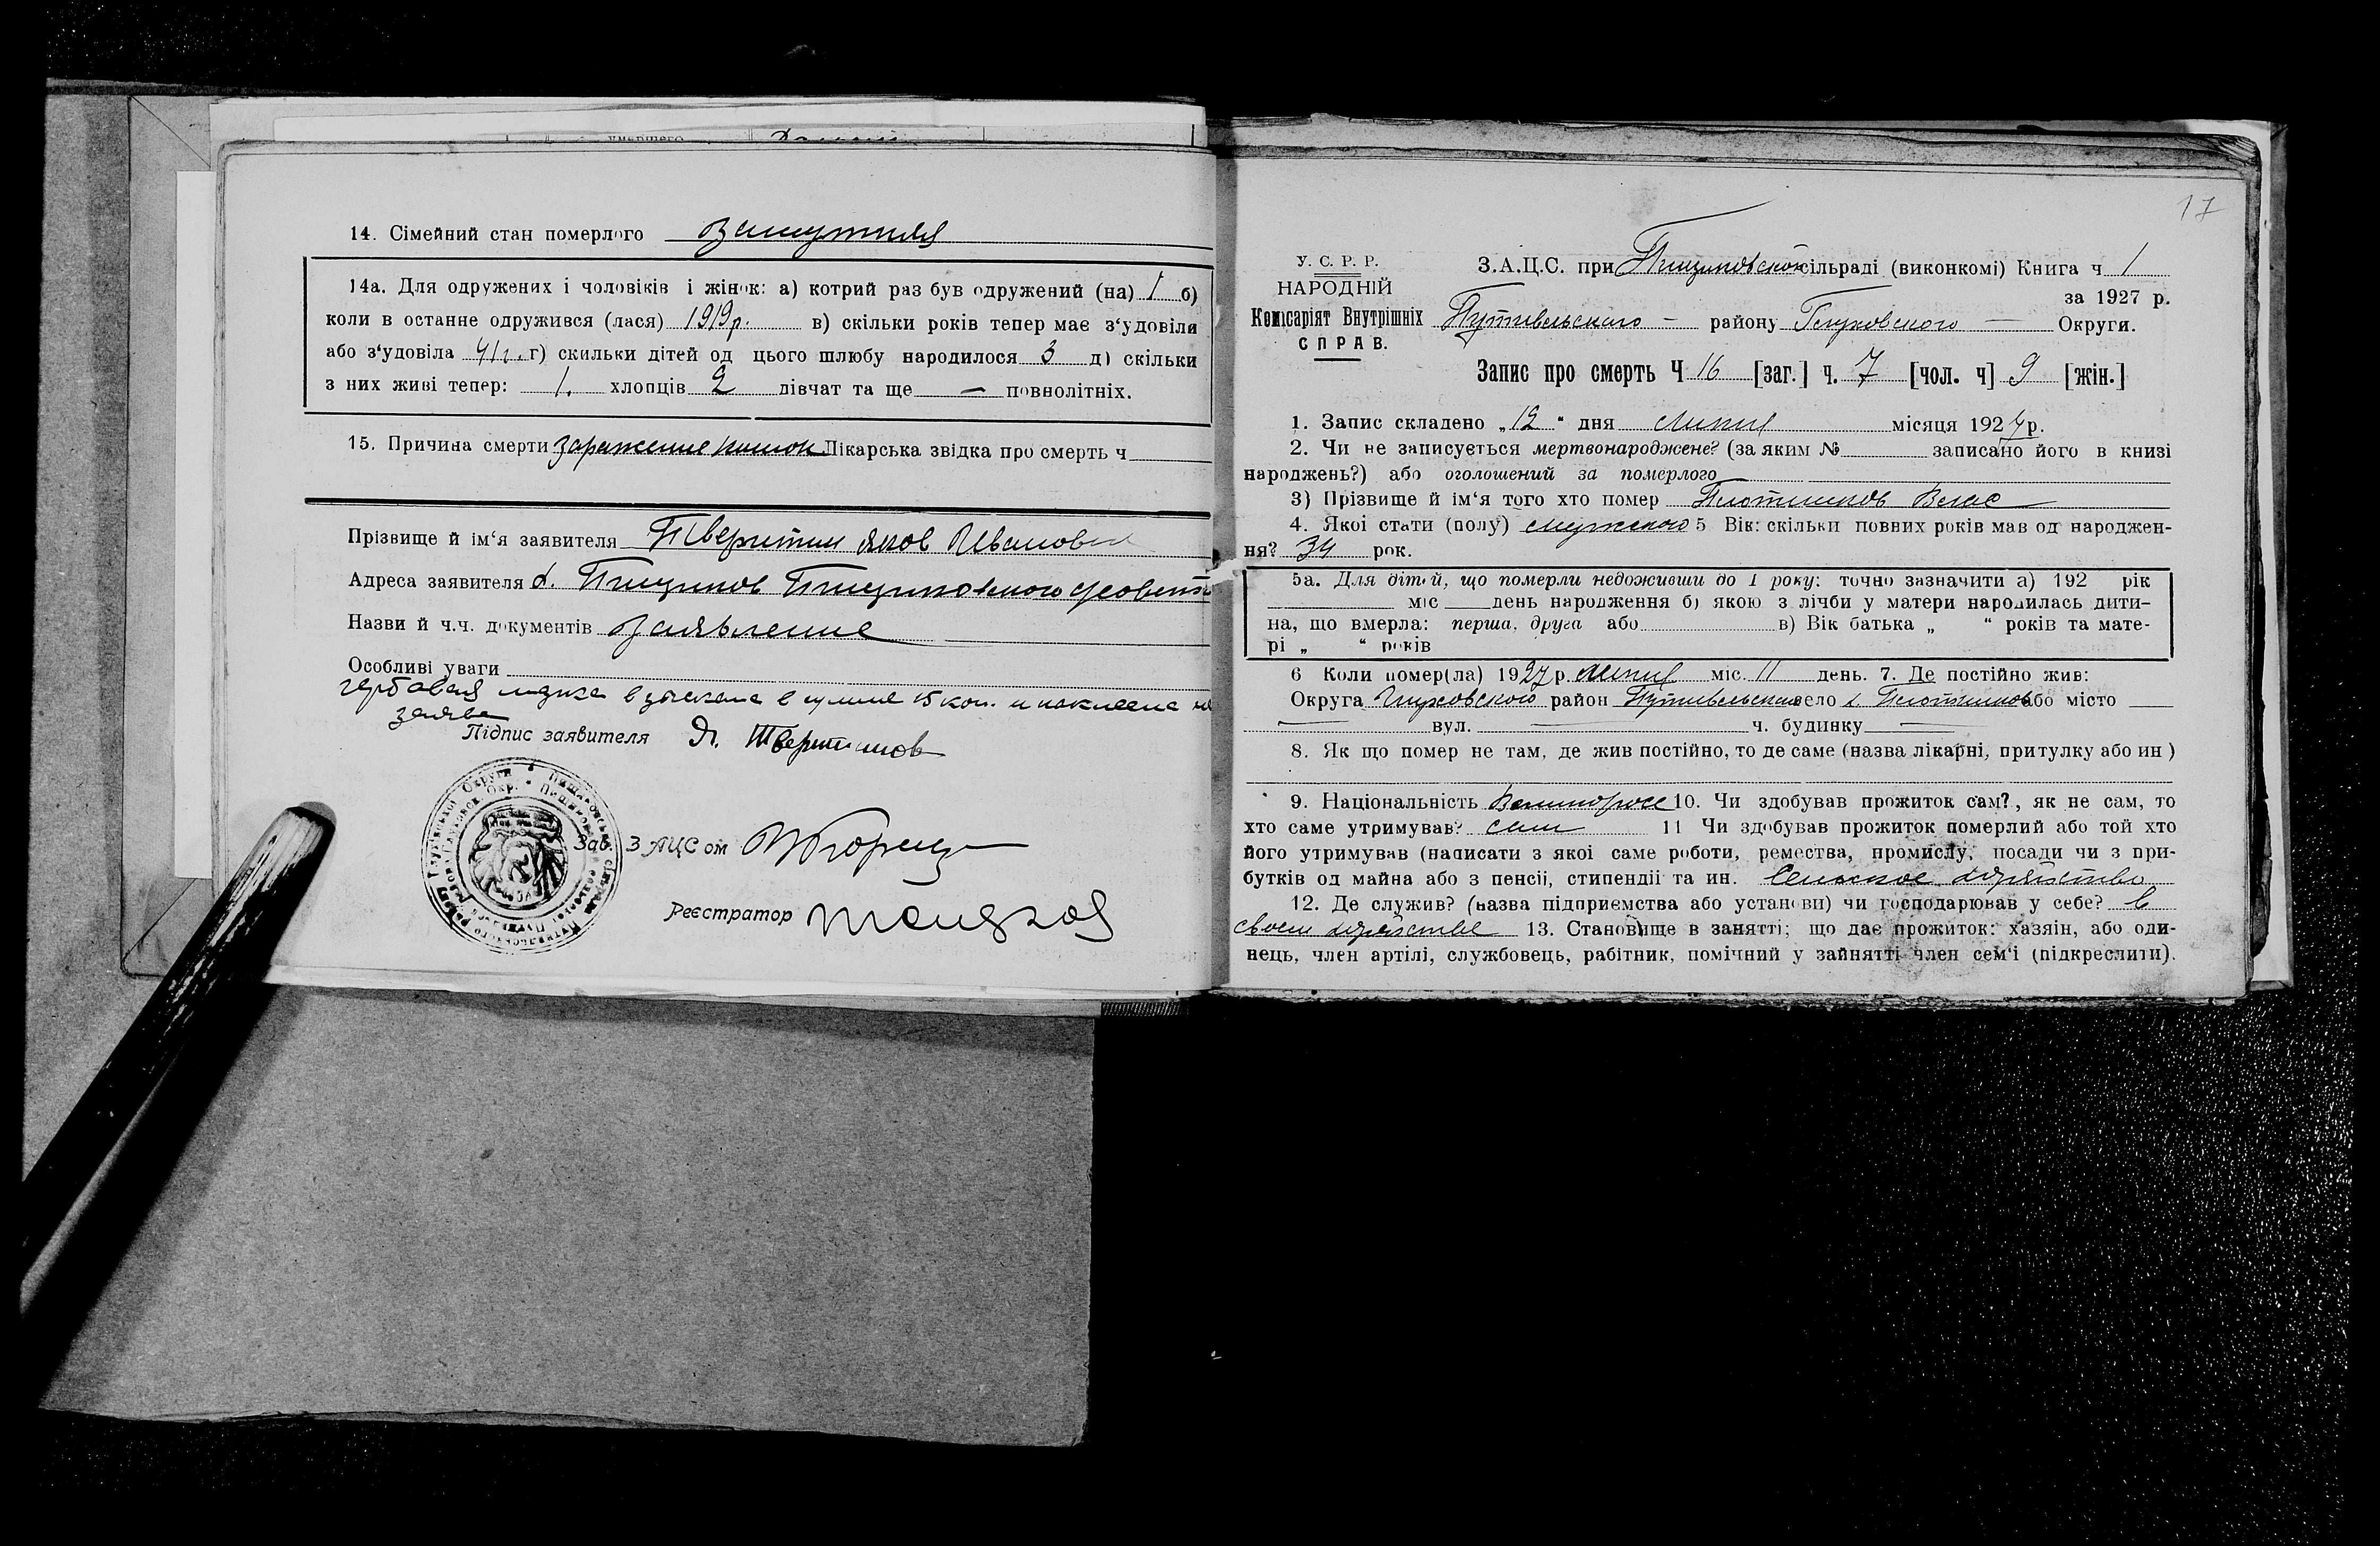 умершего
14. Сімейний стан померлого замужняя
14а. Для одружених і чоловіків і жінок: а) котрий раз був одружений (на) 1 б)
коли в останне одружився (лася) 1919 р. в) скільки років тепер має з'удовіли
або з'удовіла 41 г. г) скильки дітей од цього шлюбу народилося 3 д) скільки
з них живі тепер: 1. хлопців 2 дівчат та ще — повнолітніх.
15. Причина смерти заражение кишок Лікарська звідка про смерть ч
Прізвище й ім'я заявителя Тверитин Яков Иванович
Адреса заявителя д. Пищиков Пищиковского
Назви й ч.ч. документів Заявление
Особливі уваги
гербовая марка взыскана в сумме 15 коп. и наклеена на
заяве
Підпис заявителя Я. Тверитинов
Зав. ЗАЦСом
Реєстратор
17
У. С. Р. Р.
НАРОДНІЙ
Комісаріят Внутрішніх
СПРАВ.
З.А.Ц.С. при Пищиковской сільраді (виконкомі) Книга ч 1
за 1927 р.
Путивельского — району Глуховского — Округи.
Запис про смерть Ч 16 [заг.] ч. 7 [чол. ч] 9 [жін.]
1. Запис складено „12“ дня липня місяця 1927 р.
2. Чи не записується мертвонароджене? (за яким № записано його в книзі
народжень?) або оголошений за померлого
3) Прізвище й ім'я того хто помер Плотников Влас
4. Якої стати (полу) мужского 5 Вік: скільки повних років мав од народжен-
ня? 34 рок.
5а. Для дітей, що померли недоживши до 1 року: точно зазначити а) 192 рік
міс день народження б) якою з лічби у матери народилась дити-
на, що вмерла: перша, друга або в) Вік батька „ “ років та мате-
рі „ “ років
6 Коли помер(ла) 1927 р. липня міс. 11 день. 7. Де постійно жив:
Округа Глуховского район Путивельского село д. Плотников або місто
вул. ч. будинку
8. Як що помер не там, де жив постійно, то де саме (назва лікарні, притулку або ин )
9. Національність Великоросс 10. Чи здобував прожиток сам?, як не сам, то
хто саме утримував? сам 11 Чи здобував прожиток померлий або той хто
його утримував (написати з якоі саме роботи, ремества, промислу, посади чи з при-
бутків од майна або з пенсіі, стипендіі та ин. Сельское хозяйство
12. Де служив? (назва підприємства або установи) чи господарював у себе? в
своем хозяйстве 13. Становище в занятті; що дає прожиток: хазяін, або оди-
нець, член артілі, службовець, рабітник, помічний у зайнятті член сем'і (підкреслити).